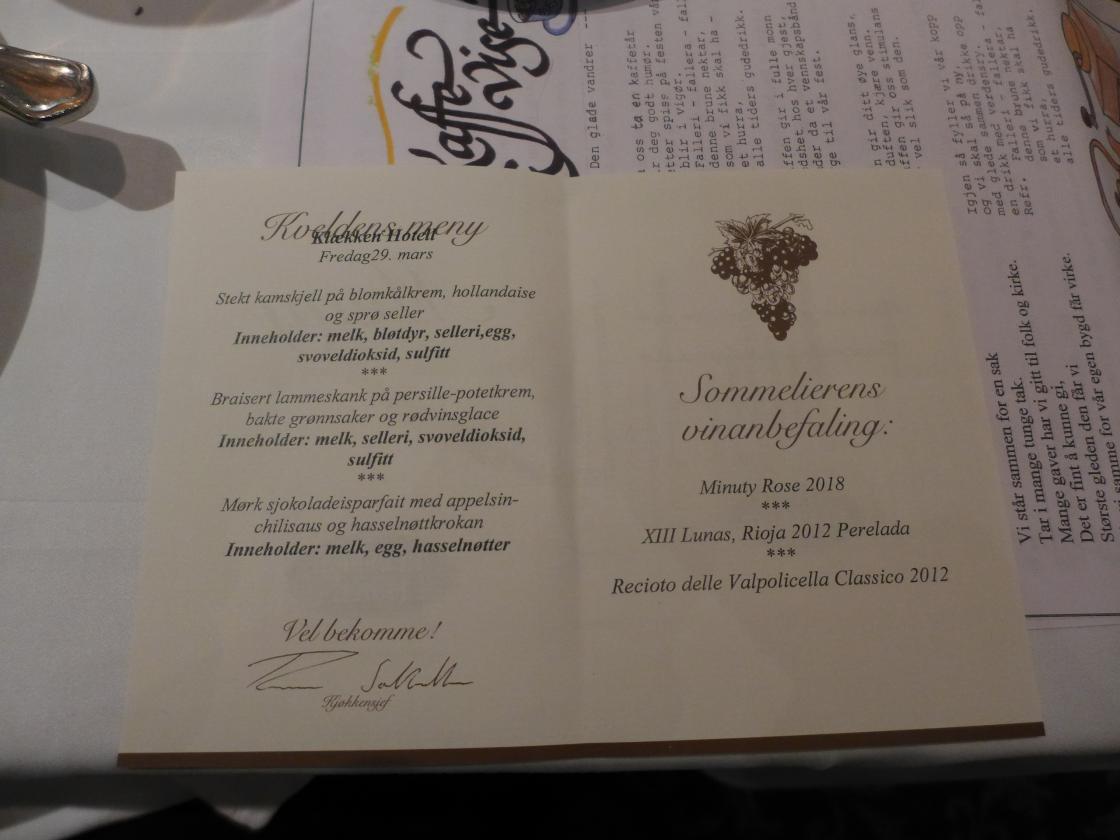 Kveldens meny
Klækken Hotell
Fredag29. mars
Stekt kamskjell på blomkålkrem, hollandaise
og sprø seller
Inneholder: melk, bløtdyr, selleri,egg,
svoveldioksid, sulfitt
***
Braisert lammeskank på persille-potetkrem,
bakte grønnsaker og rødvinsglace
Inneholder: melk, selleri, svoveldioksid,
sulfitt
***
Mørk sjokoladeisparfait med appelsin-
chilisaus og hasselnøttkrokan
Inneholder: melk, egg, hasselnøtter
Vel bekomme!
Kjøkkensjef
Sommelierens
vinanbefaling:
Minuty Rose 2018
***
XIII Lunas, Rioja 2012 Perelada
***
Recioto delle Valpolicella Classico 2012
Kaffe
Vise
Den glade vandrer
oss ta en kaffetår
deg godt humør.
etter spiss på festen vår
blir i vigør.
Falleri - fallera - fall
denne brune nektar,
som vi fikk skal ha -
et hurra,
alle tiders gudedrikk.
ffen gir i fulle monn
dshet hos hver gjest,
der da et vennskapsbånd
ge til vår fest.
n gir ditt øye glans,
duften, kjære venn.
ffen gir oss stimulans
vel slik som den.
Igjen så fyller vi vår kopp
og vi skal så på ny
med glede samen drikke opp
en drikk med verdensry.
Refr. Falleri - fallera - fa
denne brune nektar,
som vi fikk skal ha
et hurra,
alle tiders gudedrikk.
Vi står sammen for en sak
Tar i mange tunge tak.
Mange gaver har vi gitt til folk og kirke.
Det er fint å kunne gi,
Største gleden den får vi
samme for vår egen bygd får virke.